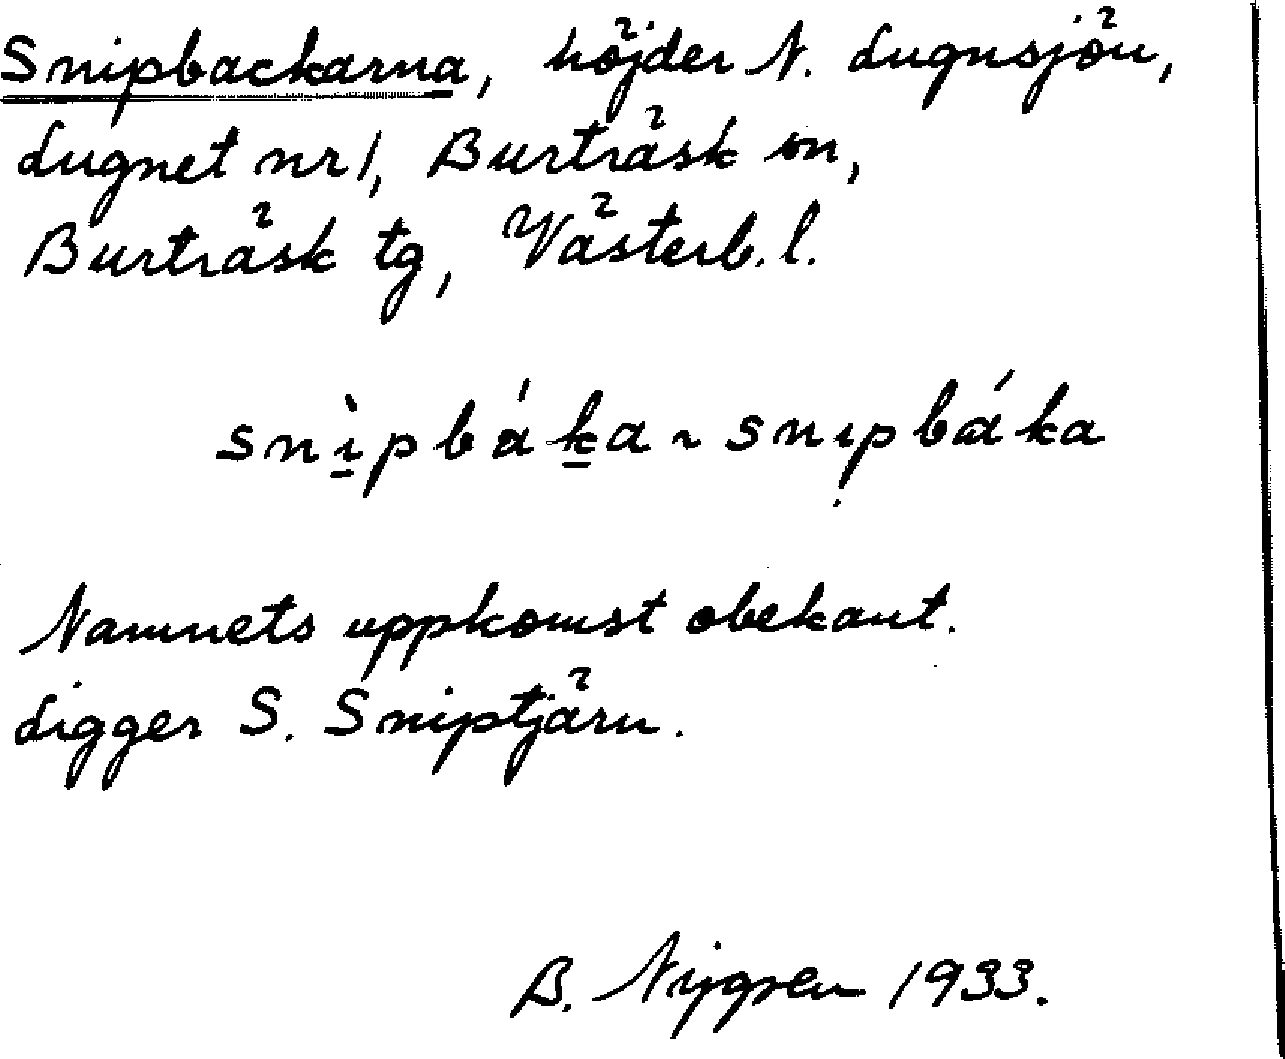 Snipbackarna, höjder N. Lugnsjön,
Lugnet nr 1, Burträsk sn,
Burträsk tg, Västerb. l.
snì̱pbáḵa ~ snipbáka
Namnets uppkomst obekant.
Ligger S. Sniptjärn.
B. Nygren 1933.